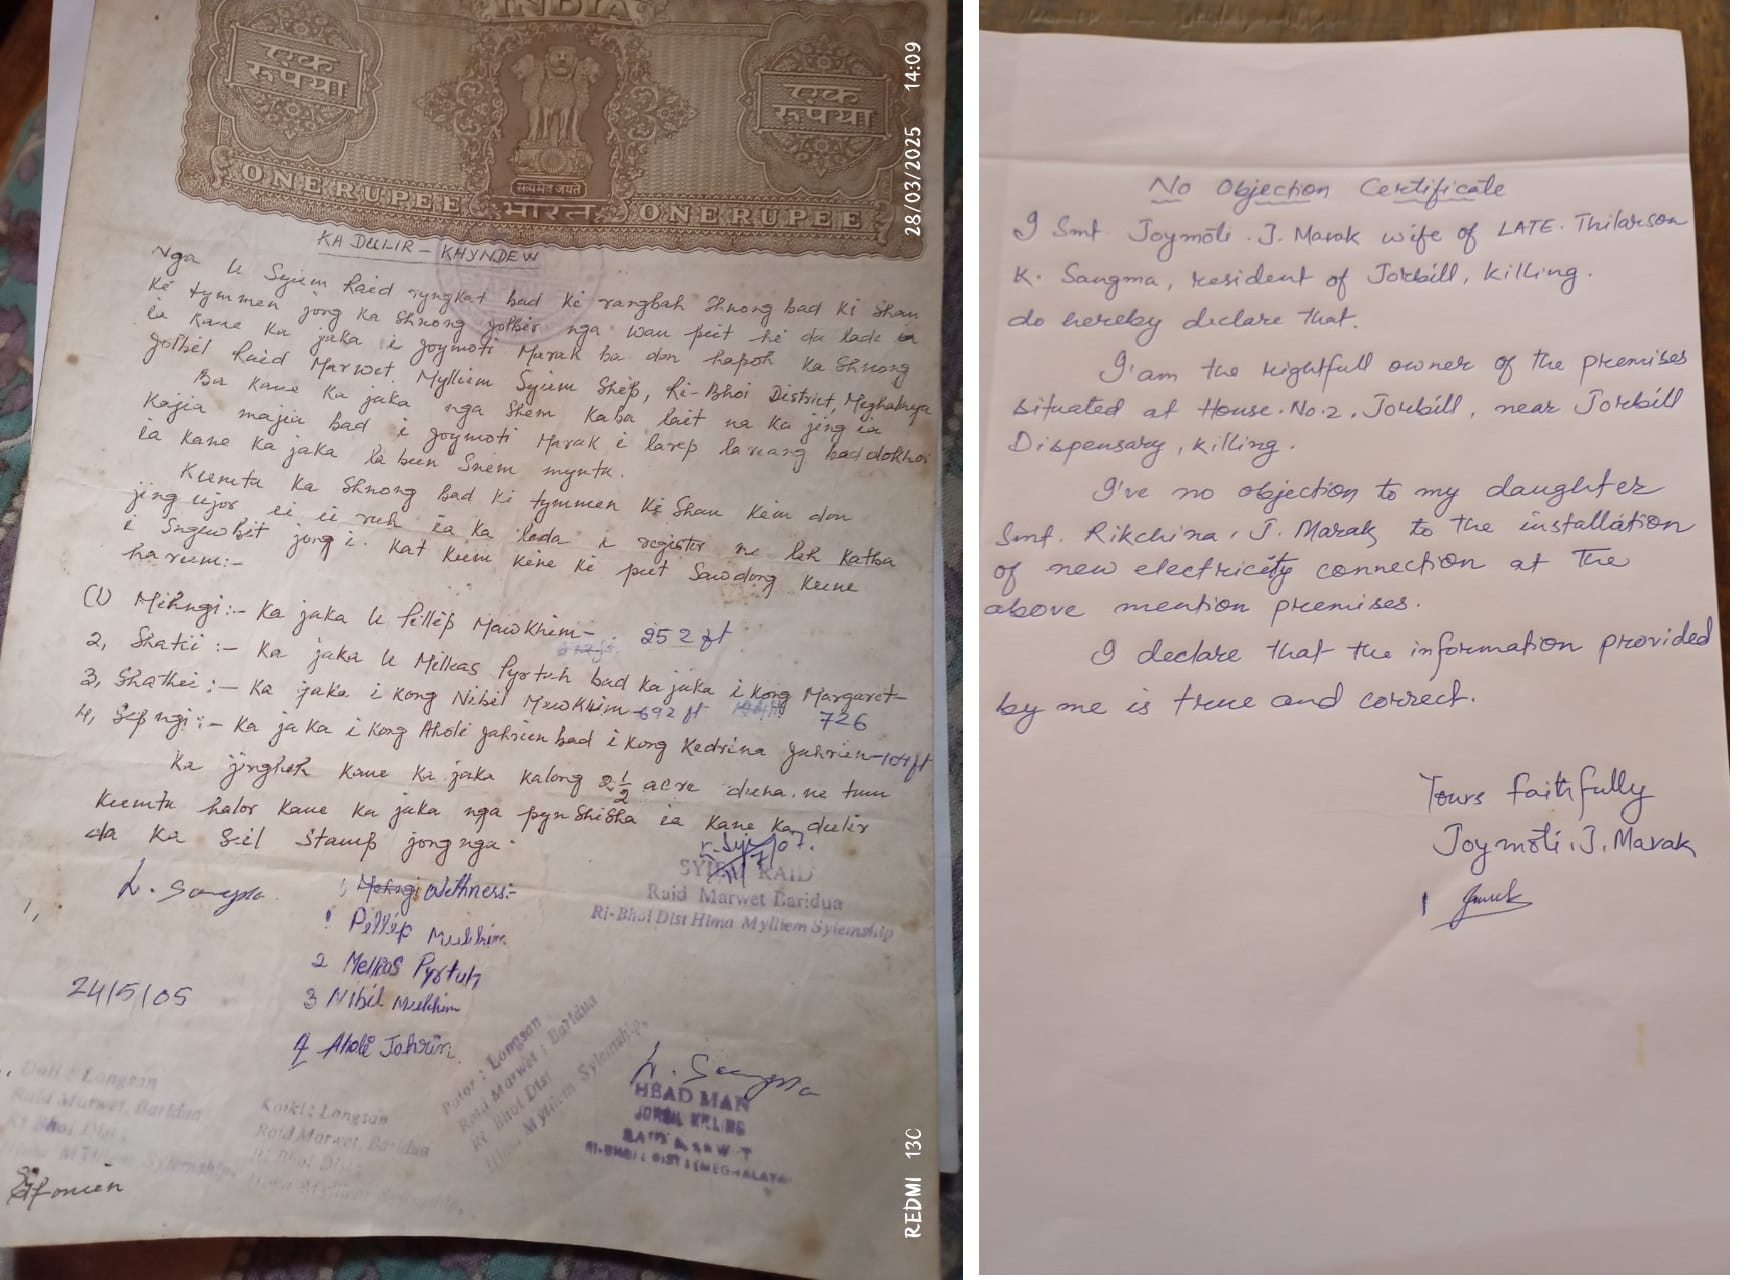 INDIA
एक रुपया
एक रुपया
सत्यमेव जयते
ONE RUPEE भारत ONE RUPEE
KA DULIR - KHYNDEW
Nga U Syiem Raid syngkat bad ki rangbah Shnong bad ki shan
ke tymmen jong ka Shnong nga wan peit hi da lade ia
ia kane ka jaka i Joymoti Marak ba don hapoh ka Shnong
Jolbil Raid Marwet, Mylliem Syiem Ship, Ri-Bhoi District, Meghalaya
Ba kane ka jaka nga shem kaba lait na ka jing ia
kajia majia bad i Joymoti Marak i larep la reang bad dokhoi
ia kane ka jaka la bun Snem mynta.
Kumta ka Shnong bad ki tymmen ki Shan kim don
jing ujor ei ei ruh ia ka lada i register ne leh katba
i Sngewbit jong i. Kat kum kine ki put Sawdong kine
harum:-
(1) Mihngi:- Ka jaka U Pillip Mawkhim- 252 ft
2, Shatei :- Ka jaka U Milkas Pyrtuh bad ka jaka i Kong Margaret-
726
3, Shathei :- Ka jaka i Kong Nibil Mawkhim-692 ft
4, Sepngi :- Ka jaka i Kong Aholi Jahrien bad i Kong Kedrina Jahrien-104ft
Ka jingheh kane ka jaka kalong 2½ acre
Kumta halor kane ka jaka nga pynshisha ia kane ka dulir
da ka Seil Stamp jong nga.
SYIEM RAID
Raid Marwet Baridua
Ri-Bhoi Dist Hima Mylliem Syiemship
L. Sangma
Withness:-
1 Pillip Mukhim
2 Melkas Pyrtuh
3 Nibil Mukhim
4 Aholi Jahrin
24/5/05
Dali : Longsan
Raid Marwet, Baridua
Ri Bhoi Dist :
Hima Mylliem Syiemship,
Kotki : Longsan
Raid Marwet, Baridua
Ri Bhoi Dist :
Hima Mylliem Syiemship,
Pator : Longsan
Raid Marwet : Baridua
Ri Bhoi Dist
Hima Mylliem Syiemship,
L. Sangma
HEAD MAN
JORBIL KILLING
RI-BHOI DIST (MEGHALAYA)
28/03/2025 14:09
REDMI 13C
No Objection Certificate
I Smt. Joymoti . J. Marak wife of LATE. Thilarson
K. Sangma, resident of Jorbill, Killing.
do hereby declare that.
I'am the rightfull owner of the premises
situated at House.No.2, Jorbill, near Jorbill
Dispensary, Killing.
I've no objection to my daughter
Smt. Rikchina. J. Marak to the installation
of new electricity connection at the
above mention premises.
I declare that the information provided
by me is true and correct.
Yours faithfully
Joymoti. J. Marak